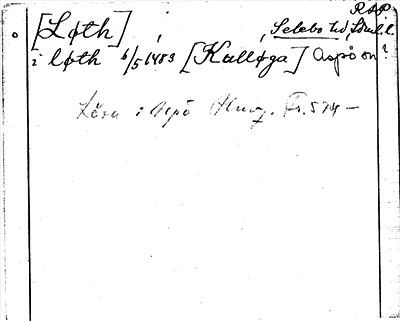 RAP
[Løth] , , Selebo hd, Söml. l.
i løth 6/5 1483 [Kulløga] Aspö sn?
Lösa i Aspö Pr. 574 —